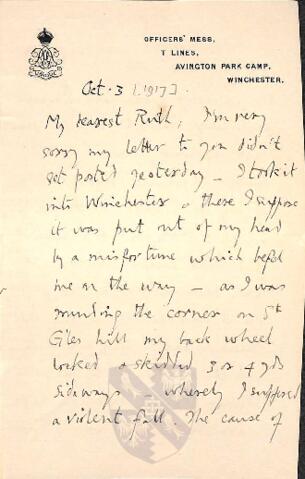 OFFICERS' MESS,
T LINES,
AVINGTON PARK CAMP,
WINCHESTER.
Oct. 3 [1917].
My dearest Ruth, I'm very
sorry my letter to you didn't
get posted yesterday – I took it
into Winchester & there I suppose
it was put out of my head
by a misfortune which befell
me on the way – as I was
rounding the corner on St
Giles hill my back wheel
locked & skidded 3 or 4 yds
sideways – whereby I suffered
a violent fall. The cause of